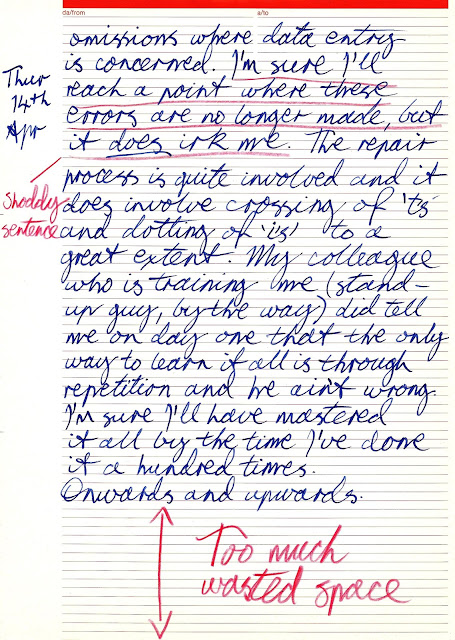 da/from a/to
omissions where data entry
is concerned. I'm sure I'll
reach a point where these
errors are no longer made, but
it does irk me. The repair
process is quite involved and it
does involve crossing of 'ts'
and dotting of 'is' to a
great extent. My colleague
who is training me (stand-
up guy, by the way) did tell
me on day one that the only
way to learn it all is through
repetition and he ain't wrong.
I'm sure I'll have mastered
it all by the time I've done
it a hundred times.
Onwards and upwards.
Thur
14th
Apr
Shoddy
sentence
Too much
wasted space